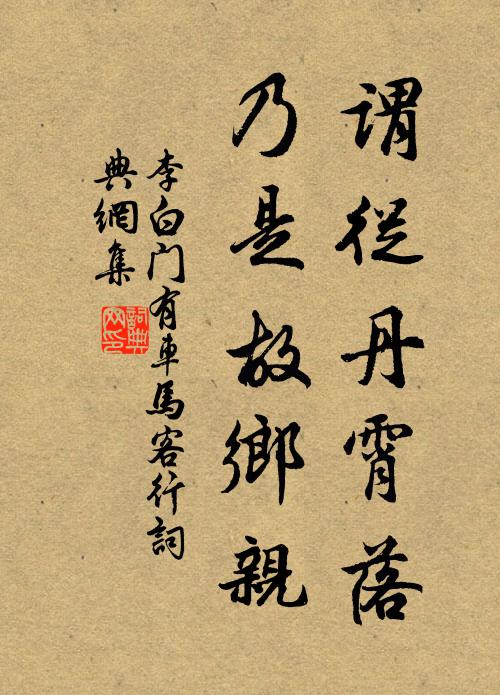 謂從丹霄落
乃是故鄉親
李白門有車馬客行詞
典網集
詞典
网印